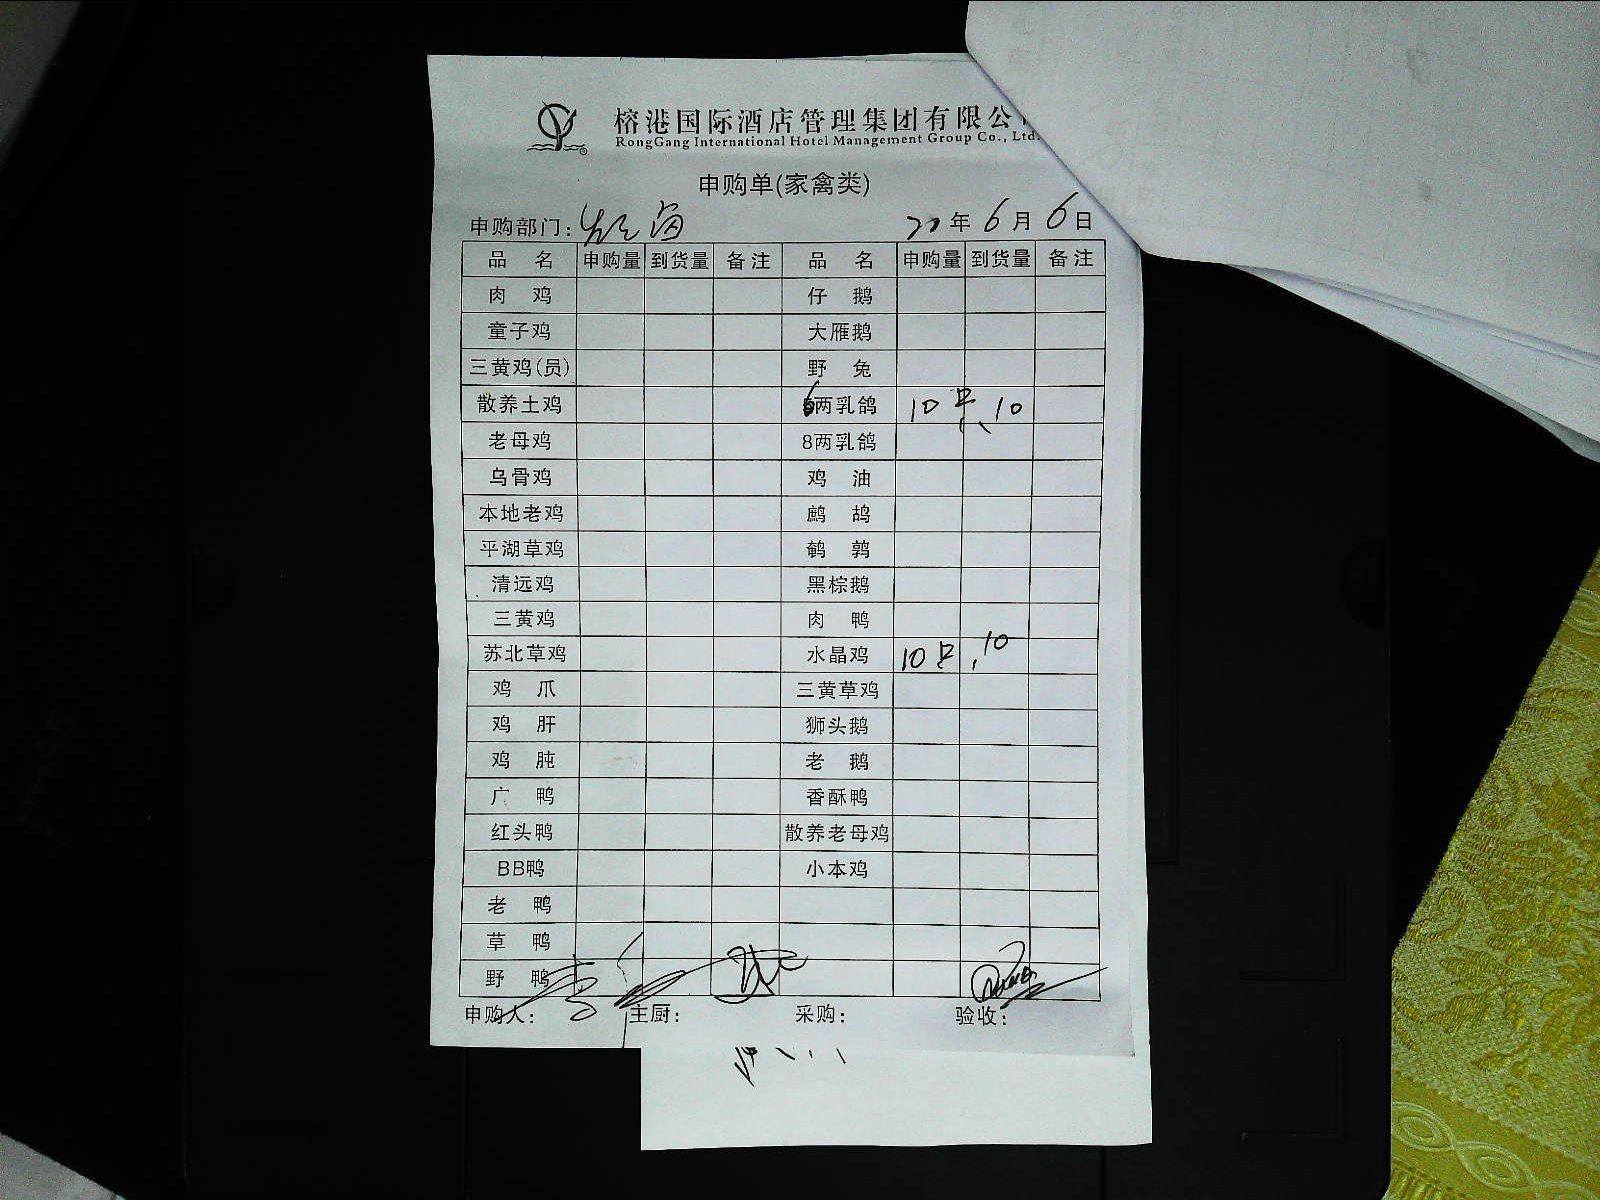 榕港国际酒店管理集团有限公
RongGang International Hotel Management Group Co., Ltd.
申购单(家禽类)
申购部门: 20年6月6日
品名 申购量 到货量 备注 品名 申购量 到货量 备注
肉鸡 仔鹅
童子鸡 大雁鹅
三黄鸡(员) 野兔
散养土鸡 6两乳鸽 10只 10
老母鸡 8两乳鸽
乌骨鸡 鸡油
本地老鸡 鹧鸪
平湖草鸡 鹌鹑
清远鸡 黑棕鹅
三黄鸡 肉鸭
苏北草鸡 水晶鸡 10只 10
鸡爪 三黄草鸡
鸡肝 狮头鹅
鸡肫 老鹅
广鸭 香酥鸭
红头鸭 散养老母鸡
BB鸭 小本鸡
老鸭
草鸭
野鸭
申购人: 主厨: 采购: 验收: